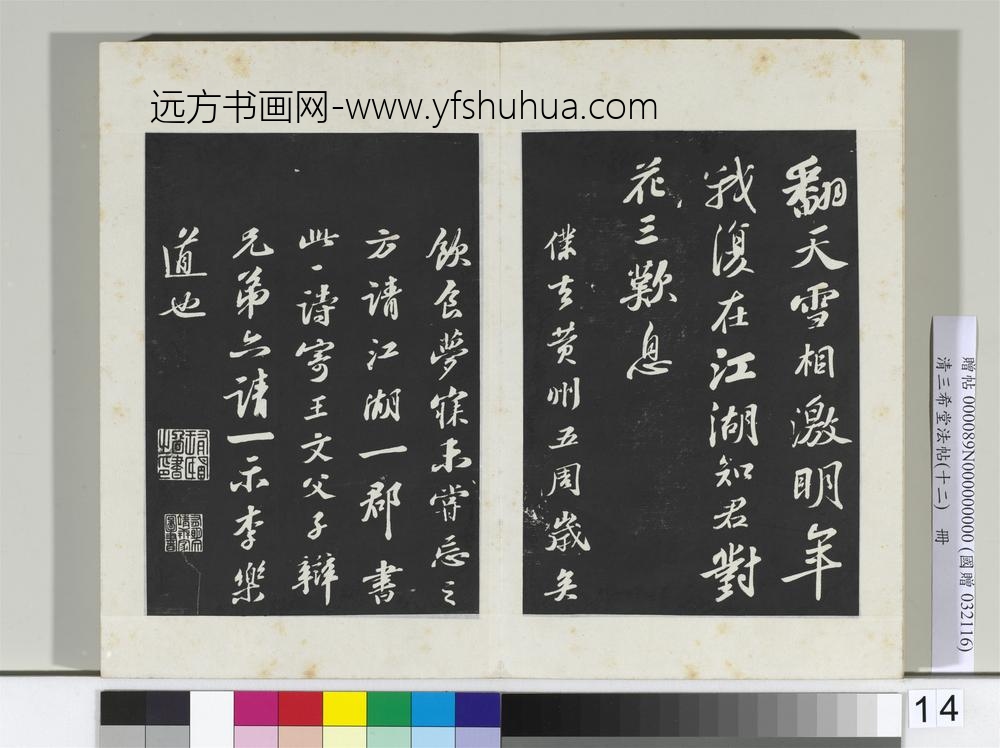 远方书画网-www.yfshuhua.com
翻天雪相激明年
我復在江湖知君對
花三歎息
僕去黄州五周歲矣
飲食夢寐未嘗忘之
方請江湖一郡書
此一詩寄王文父子辯
兄弟亦請一示李樂
道也
贈帖 000089N000000000 (國贈 032116)
清三希堂法帖(十二) 冊
14